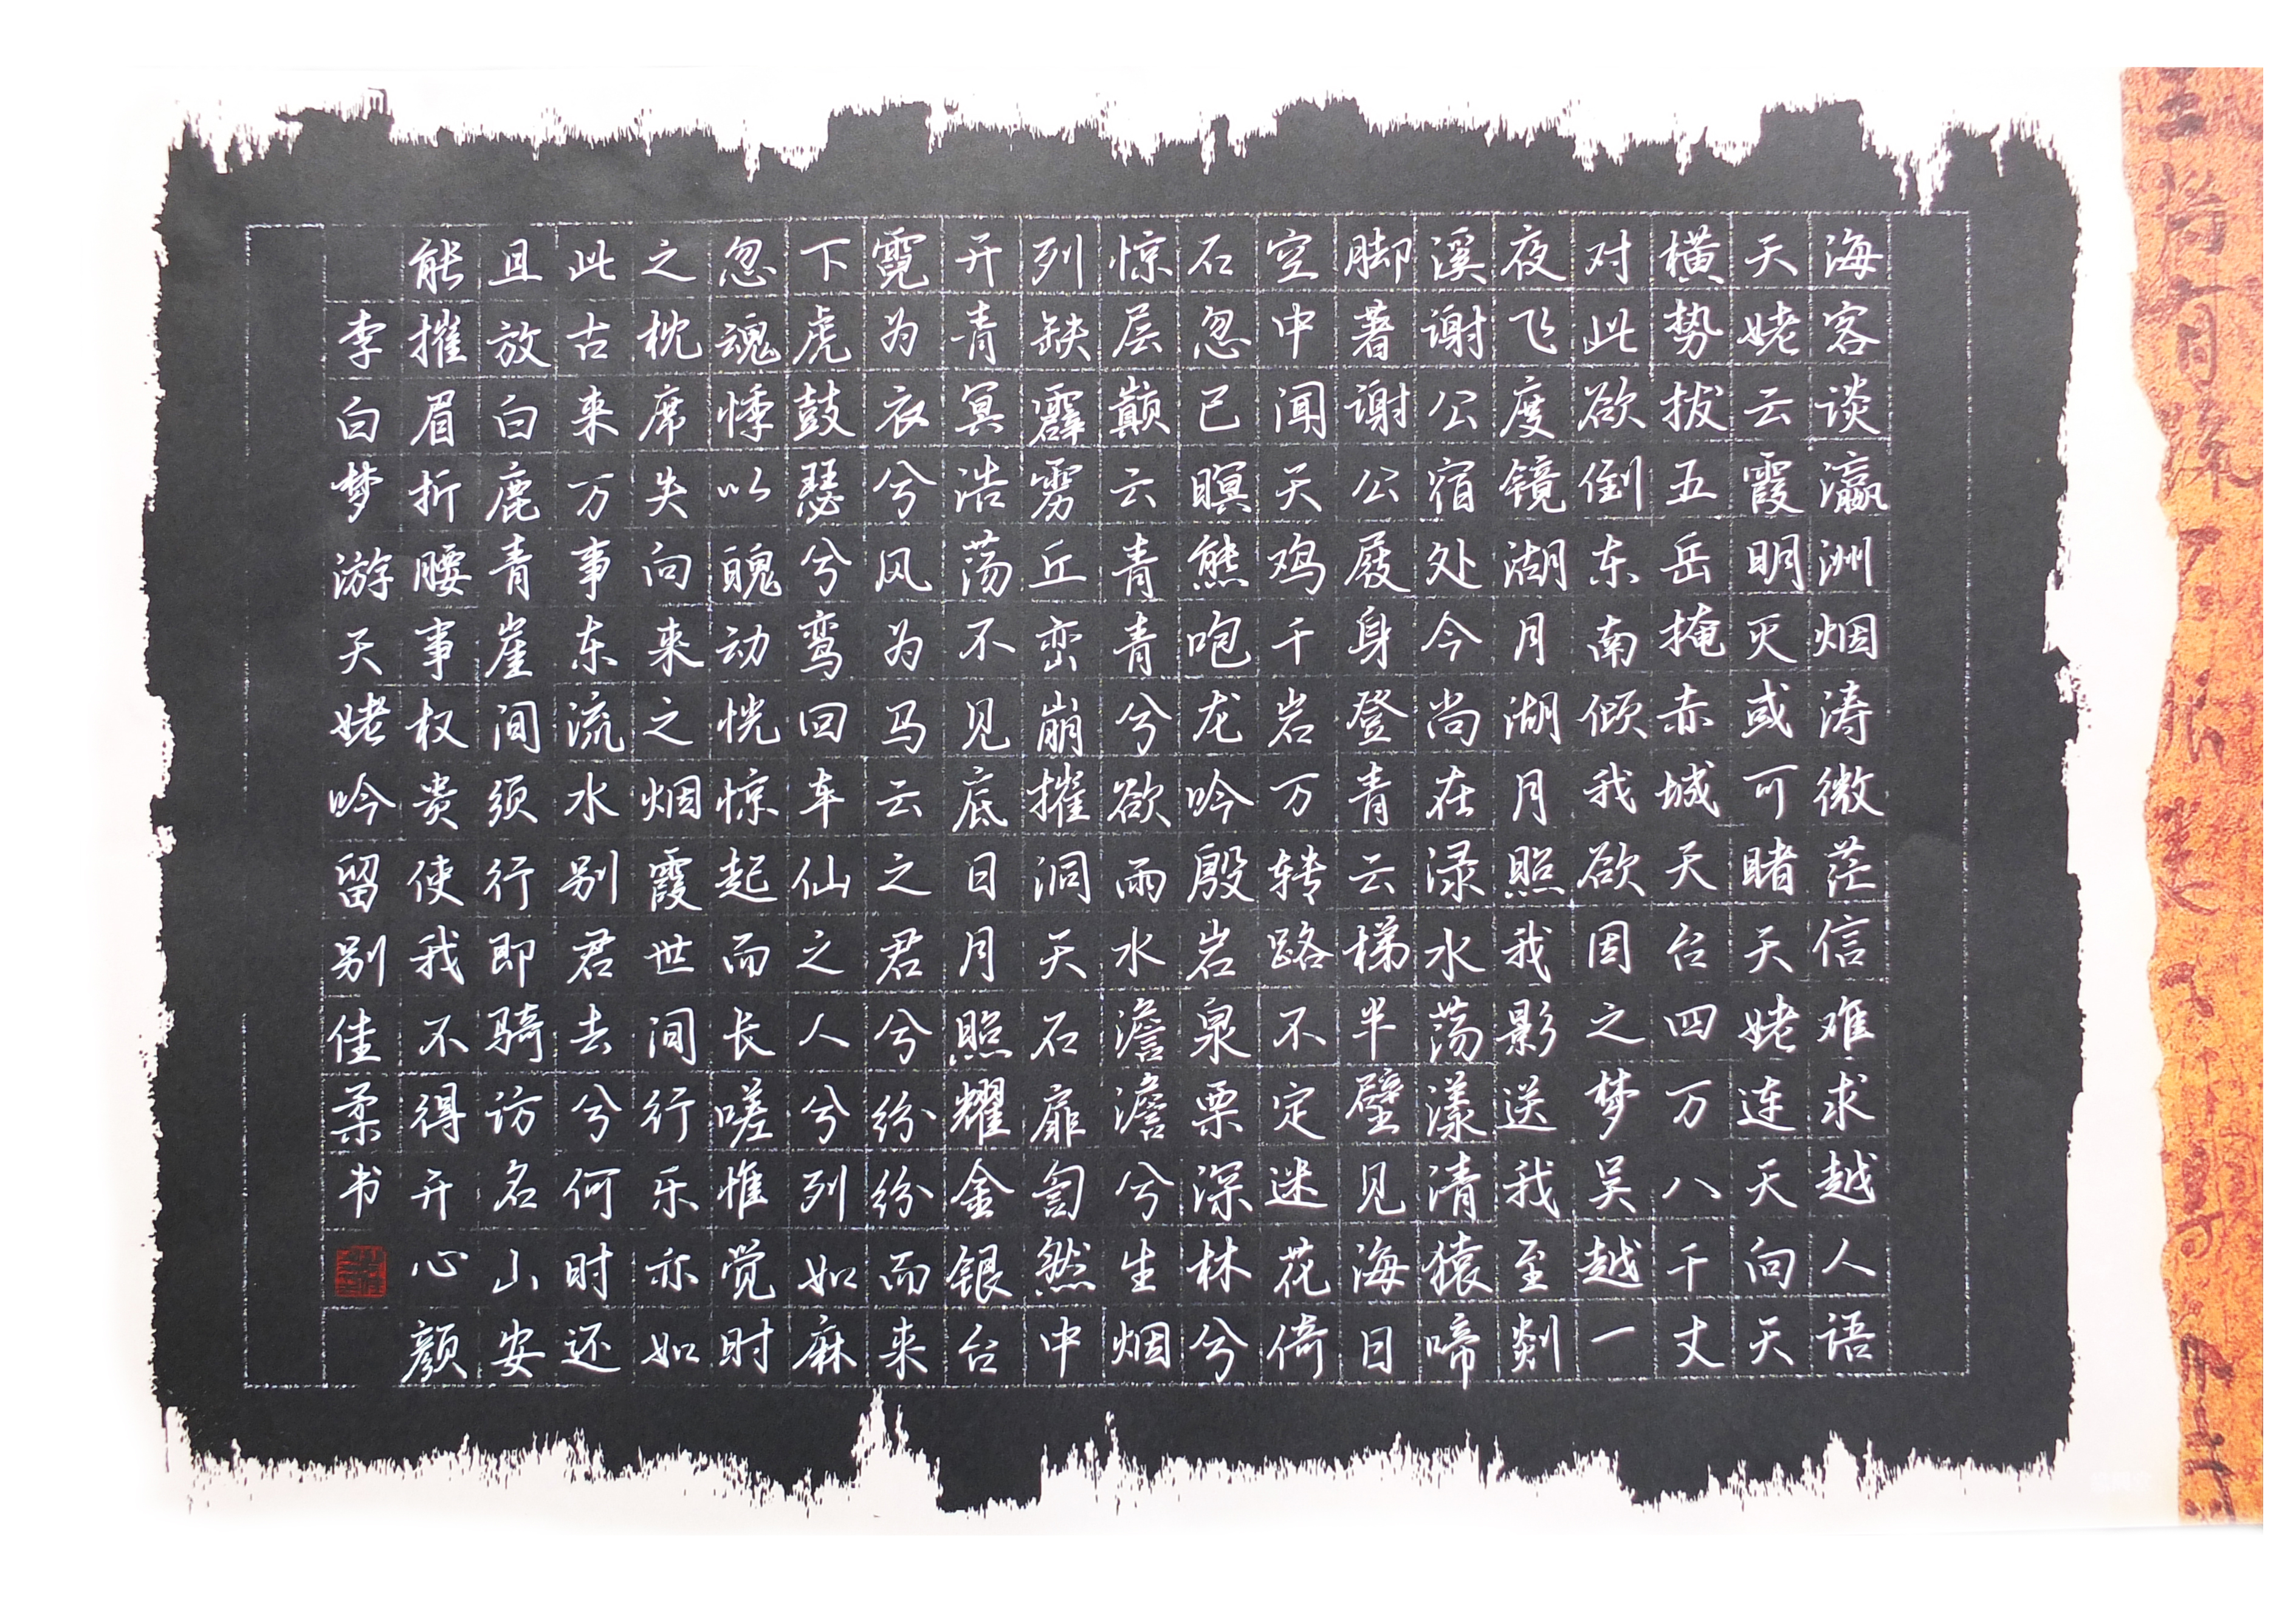 海客谈瀛洲烟涛微茫信难求越人语
天姥云霞明灭或可睹天姥连天向天
横势拔五岳掩赤城天台四万八千丈
对此欲倒东南倾我欲因之梦吴越一
夜飞度镜湖月湖月照我影送我至剡
溪谢公宿处今尚在渌水荡漾清猿啼
脚著谢公屐身登青云梯半壁见海日
空中闻天鸡千岩万转路不定迷花倚
石忽已暝熊咆龙吟殷岩泉栗深林兮
惊层巅云青青兮欲雨水澹澹兮生烟
列缺霹雳丘峦崩摧洞天石扉訇然中
开青冥浩荡不见底日月照耀金银台
霓为衣兮风为马云之君兮纷纷而来
下虎鼓瑟兮鸾回车仙之人兮列如麻
忽魂悸以魄动恍惊起而长嗟惟觉时
之枕席失向来之烟霞世间行乐亦如
此古来万事东流水别君去兮何时还
且放白鹿青崖间须行即骑访名山安
能摧眉折腰事权贵使我不得开心颜
李白梦游天姥吟留别佳柔书